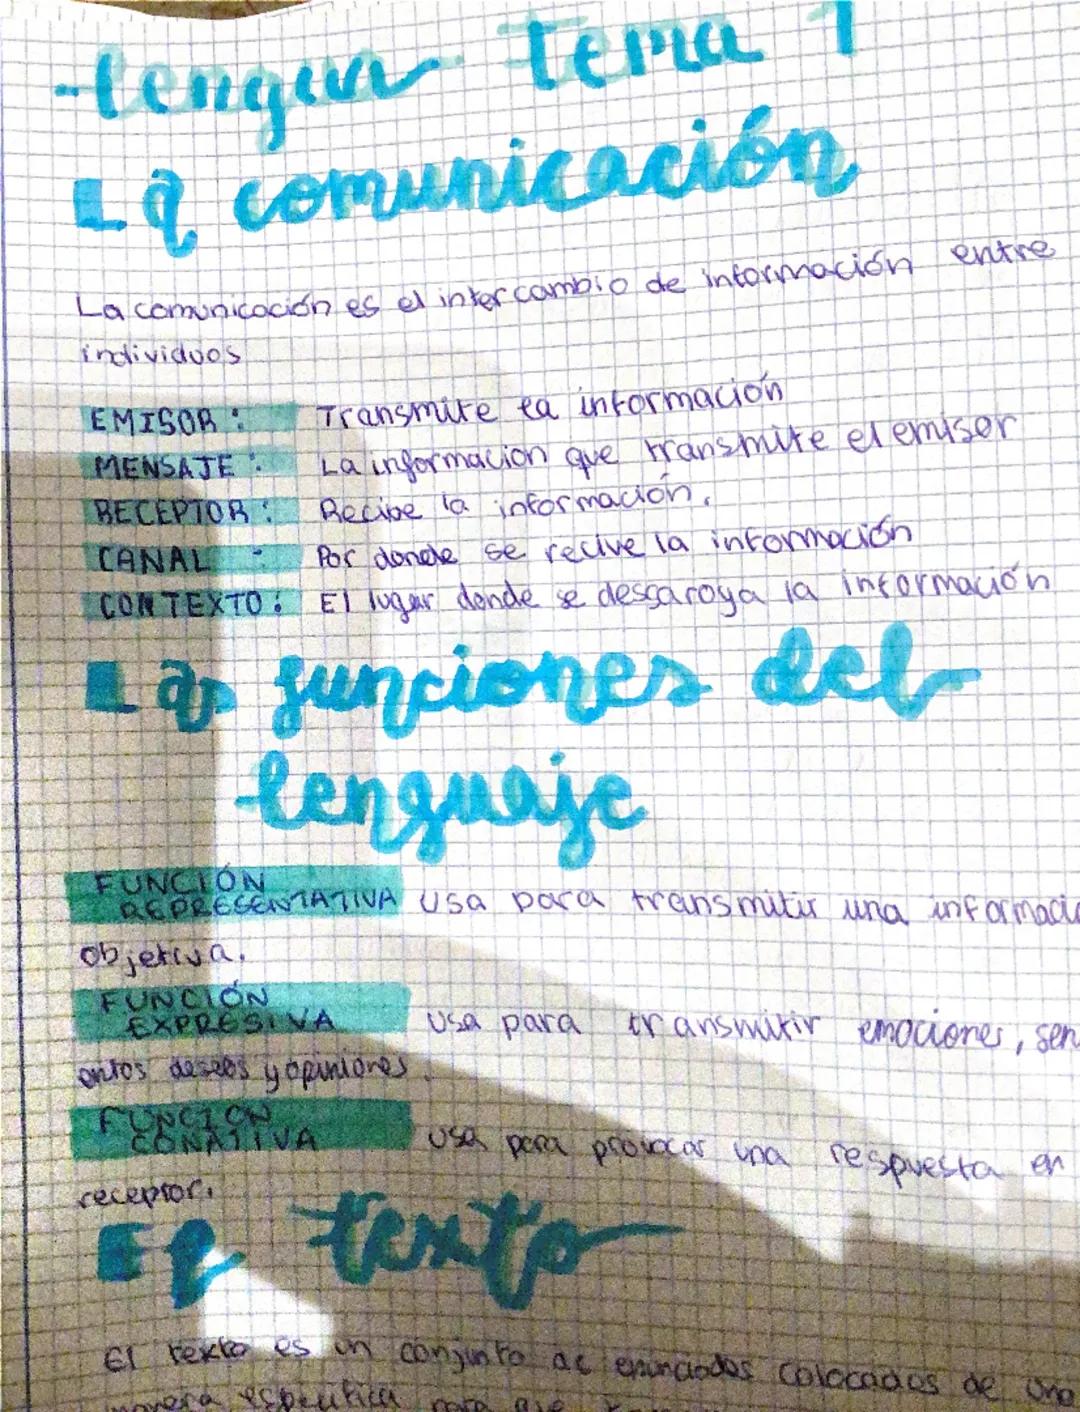 Lengua tema 1
La comunicación
La comunicación es el intercambio de información entre
individuos
EMISOR: Transmite la información
MENSAJE: La informacion que transmite el emisor
RECEPTOR: Recibe la información.
CANAL: Por donde se recive la información
CONTEXTO: El lugar donde se desgaroya la información
Las funciones del
lenguaje
FUNCIÓN
REPRESENTATIVA Usa para transmitir una informació
objetiva.
FUNCIÓN
EXPRESIVA Usa para transmitir emociones, sen
entos deseos y opiniones.
FUNCIÓN
CONATIVA Usa para provocar una respuesta en
receptor.
El texto
El texto es un conjunto de enunciados colocados de una
manera especifica para que